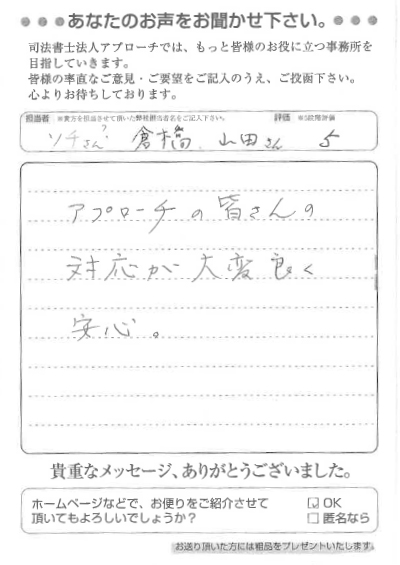 ●●●あなたのお声をお聞かせ下さい。●●●
司法書士法人アプローチでは、もっと皆様のお役に立つ事務所を
目指していきます。
皆様の率直なご意見・ご要望をご記入のうえ、ご投函下さい。
心よりお待ちしております。
担当者 ※貴方を担当させて頂いた弊社担当者名をご記入下さい。 評価 ※5段階評価
ソチさん? 倉橋、山田さん 5
アプローチの皆さんの
対応が大変良く
安心。
貴重なメッセージ、ありがとうございました。
ホームページなどで、お便りをご紹介させて
頂いてもよろしいでしょうか?
☑ OK
□ 匿名なら
お送り頂いた方には粗品をプレゼントいたします。